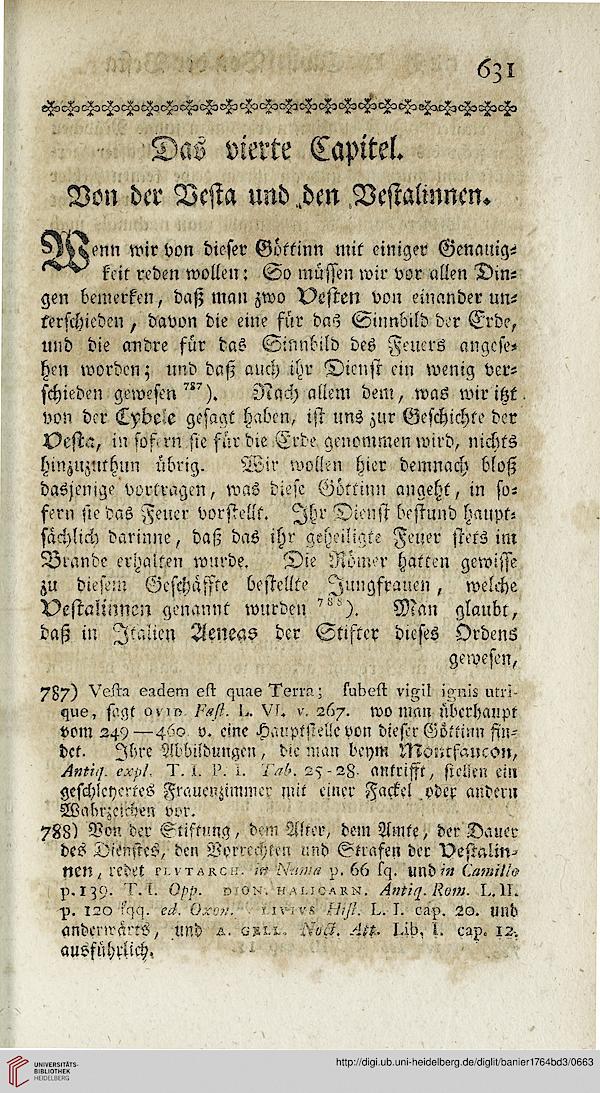 631
Das vierte Capitel.
Von der Vesta und den Vestalinnen.
Wenn wir von dieser Göttinn mit einiger Genauig-
keit reden wollen: So müssen wir vor allen Din-
gen bemerken, daß man zwo Vesten von einander un-
terschieden, davon die eine für das Sinnbild der Erde,
und die andre für das Sinnbild des Feuers angese-
hen worden; und daß auch ihr Dienst ein wenig ver-
schieden gewesen 787). Nach allem dem, was wir itzt
von der Cybele gesagt haben, ist uns zur Geschichte der
Vesta, in sofern sie für die Erde genommen wird, nichts
hinzuzuthun übrig. Wir wollen hier demnach bloß
dasjenige vortragen, was diese Göttinn angeht, in so-
fern sie das Feuer vorstellt. Ihr Dienst bestund haupt-
sächlich darinne, daß das ihr geheiligte Feuer stets im
Brande erhalten wurde. Die Römer hatten gewisse
zu diesem Geschäffte bestellte Jungfrauen, welche
Vestalinnen genannt wurden 788). Man glaubt,
daß in Italien Aeneas der Stifter dieses Ordens
gewesen,
787) Vesta eadem est quae Terra; subest vigil ignis utri-
que, sagt OVID. Fast. L. VI. v. 267. wo man überhaupt
vom 249—460 v. eine Hauptstelle von dieser Göttinn fin-
det. Ihre Abbildungen, die man beym Montfaucon,
Antiq. expl. T. I. P. I. Tab. 25-28. antrifft, stellen ein
geschleyertes Frauenzimmer mit einer Fackel oder andern
Wahrzeichen vor.
788) Von der Stiftung, dem Alter, dem Amte, der Dauer
des Dienstes, den Vorrechten und Strafen der Vestalin-
nen, redet PLVTARCH. in Numa p. 66 sq. und in Camillo
p. 139. T. I. Opp. DION. HALICARN. Antiq. Rom. L. II.
p. 120 sqq. ed. Oxon. LIVIVS Hist. L. I. cap. 20. und
anderwärts, und A. GELL. Noct. Att. Lib. I. cap. 12.
ausführlich.
UNIVERSITÄTS-
BIBLIOTHEK
HEIDELBERG
http://digi.ub.uni-heidelberg.de/diglit/banier1764bd3/0663